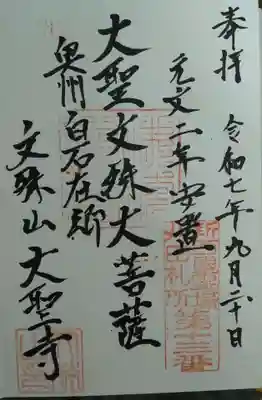 奉拝 令和七年九月二十日
第十三番
元文二年安置
大聖文殊大菩薩
奥州白石在郷
文殊山大聖寺